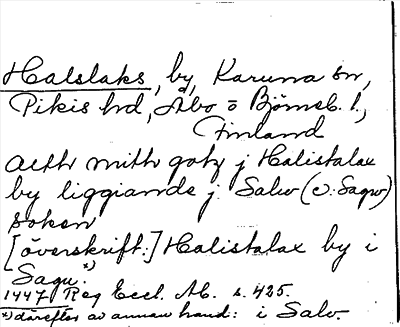 Halslaks, by, Karuna sn,
Pikis hd, Åbo o Björneb. l.,
Finland
aeth mith gotz j Halistalax
by liggiande j Salw (ɔ: Sagw)
soken
[överskrift:] Halistalax by i
Sagu.*)
1447 Reg Eccl. Ab. s. 425.
*) därefter av annan hand: i Salv.